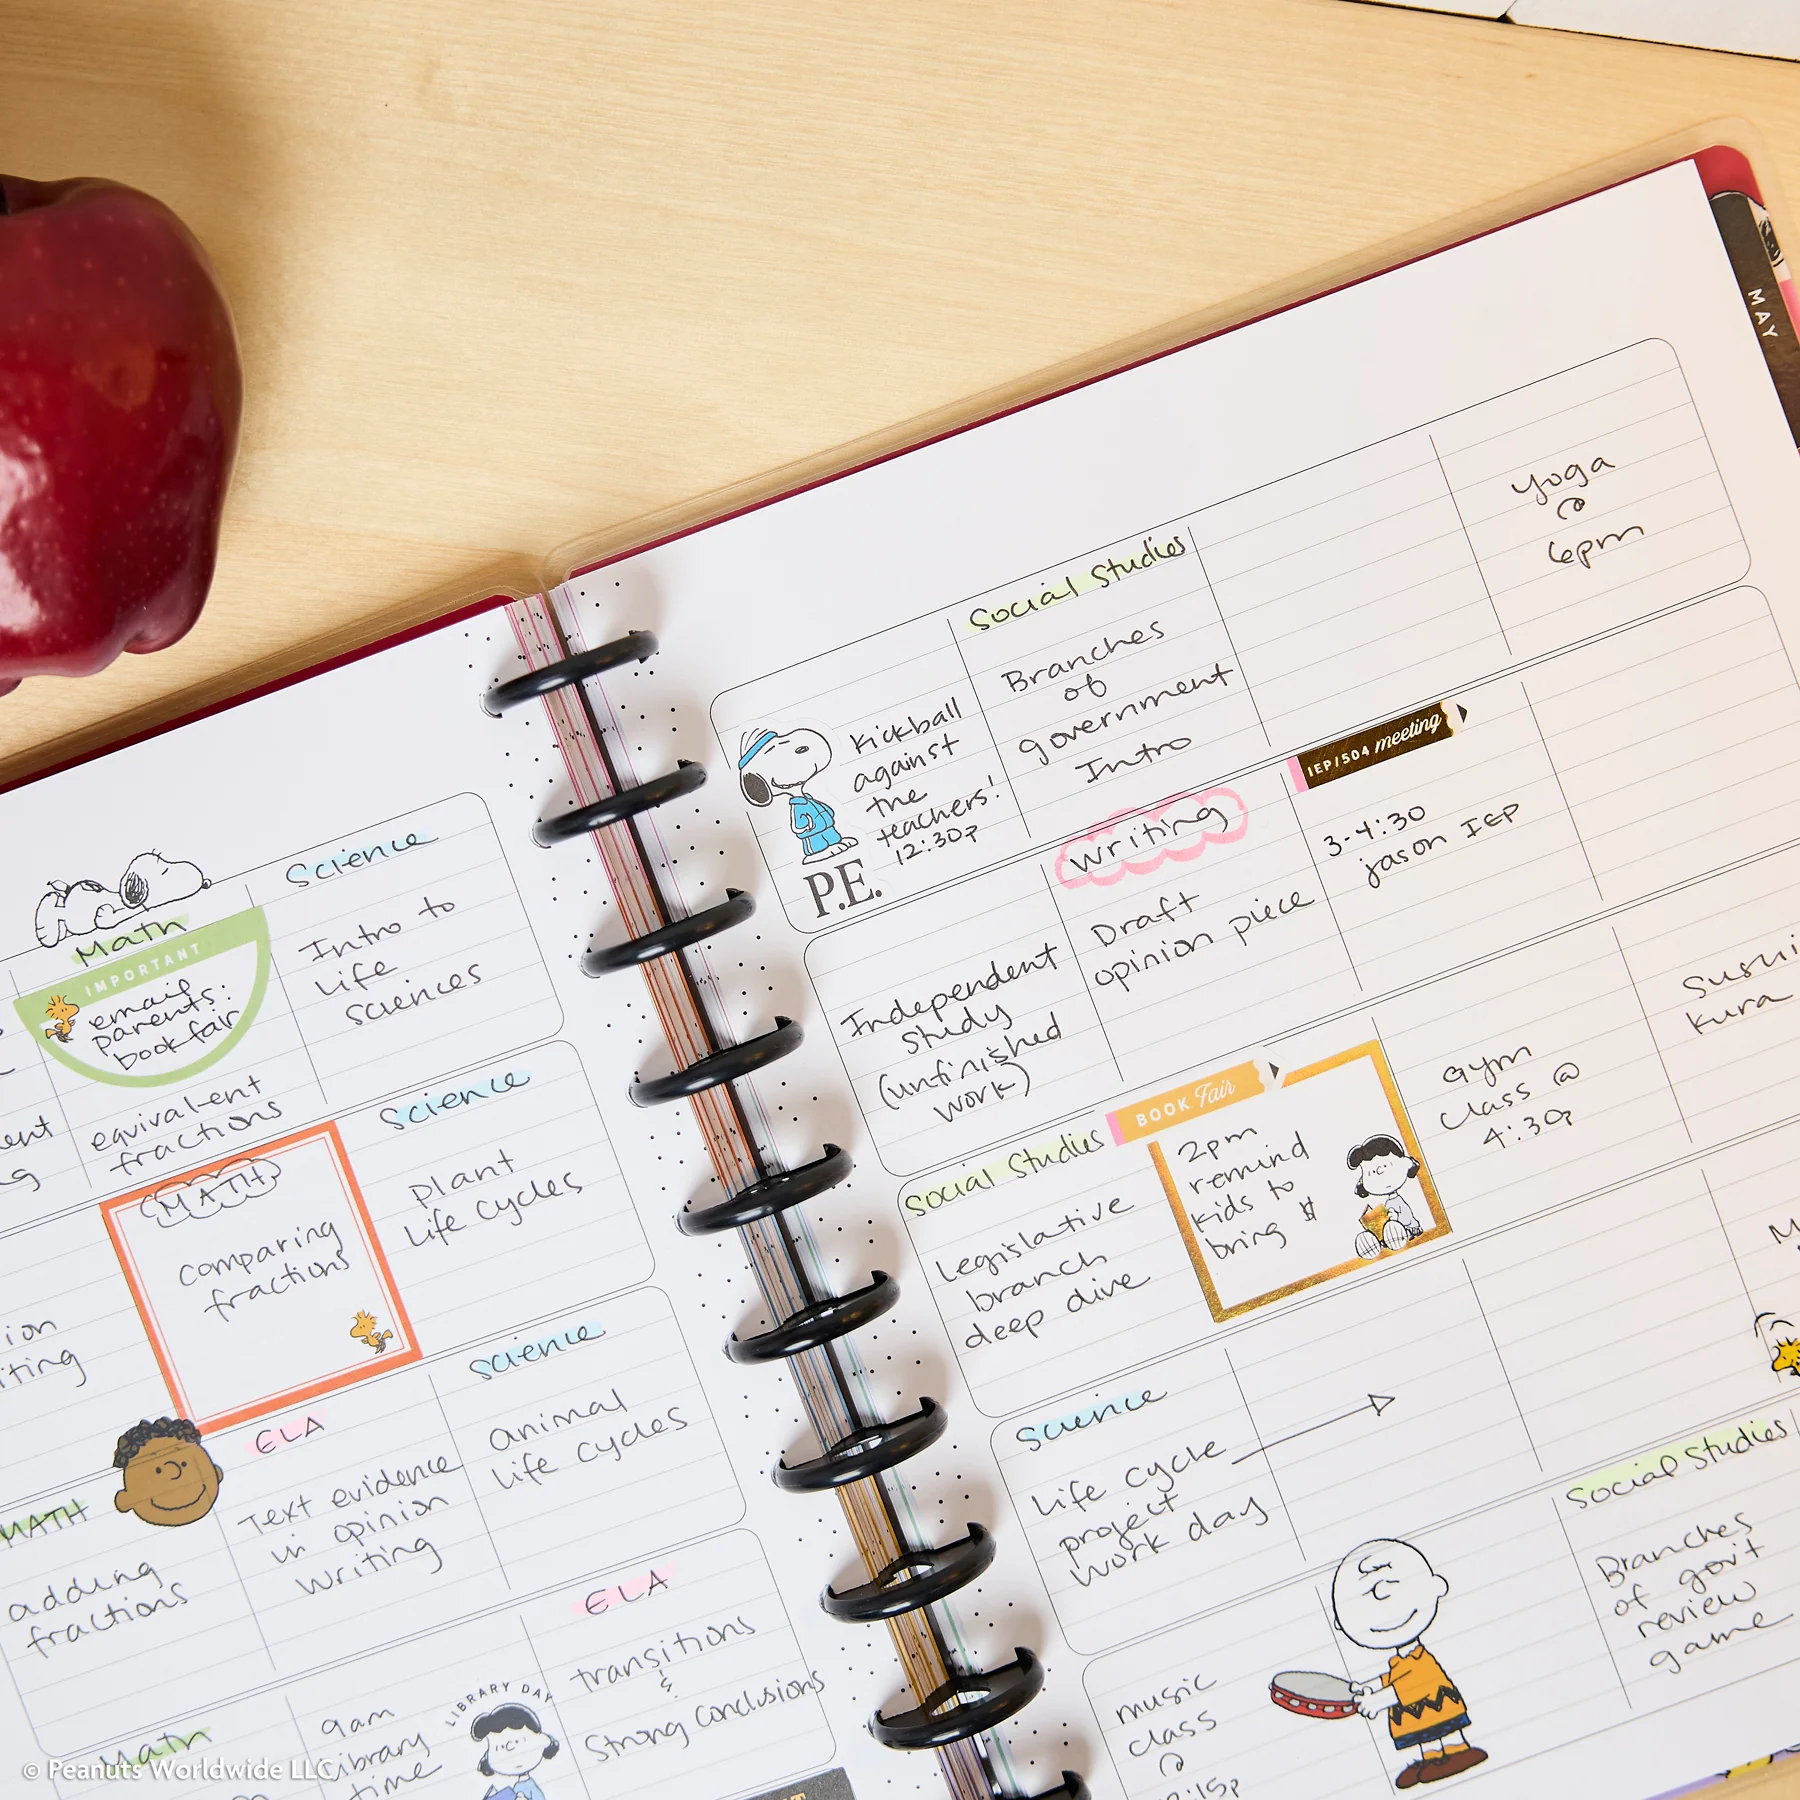 Math
IMPORTANT
email
parents:
book fair
equivalent
fractions
Science
Intro to
life
sciences
MATH
comparing
fractions
Science
plant
life cycles
MATH
adding
fractions
ELA
Text evidence
in opinion
writing
Science
animal
life cycles
Math
9am
library
time
LIBRARY DAY
ELA
transitions
&
strong conclusions
© Peanuts Worldwide LLC
MAY
Kickball
against
the
teachers!
12:30p
P.E.
Social Studies
Branches
of
government
Intro
Yoga
@
6pm
Independent
study
(unfinished
work)
Writing
Draft
opinion piece
IEP/504 meeting
3-4:30
jason IEP
Social Studies
Legislative
branch
deep dive
BOOK Fair
2pm
remind
kids to
bring $
gym
class @
4:30p
Sushi
Kura
Science
Life cycle
project
work day
music
class
@
Social Studies
Branches
of gov't
review
game